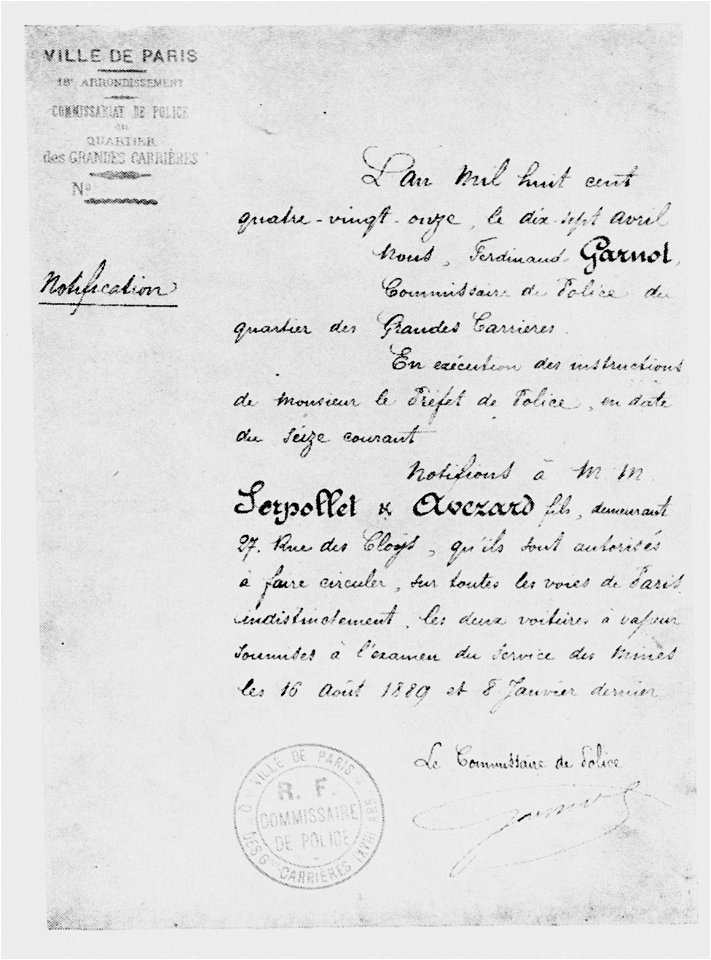 VILLE DE PARIS
18e ARRONDISSEMENT
COMMISSARIAT DE POLICE
du
QUARTIER
des GRANDES CARRIÈRES
No
Notification
L'an mil huit cent
quatre-vingt-onze, le dix-sept avril
Nous, Ferdinand Garnot,
Commissaire de Police du
quartier des Grandes Carrières.
En exécution des instructions
de Monsieur le Préfet de Police, en date
du seize courant
Notifions à M.M.
Serpollet & Avezard fils, demeurant
27, Rue des Cloys, qu'ils sont autorisés
à faire circuler, sur toutes les voies de Paris
indistinctement, les deux voitures à vapeur
soumises à l'examen du Service des Mines
les 16 Août 1889 et 8 Janvier dernier
Le Commissaire de Police
VILLE DE PARIS
R. F.
COMMISSAIRE
DE POLICE
DES G. CARRIÈRES